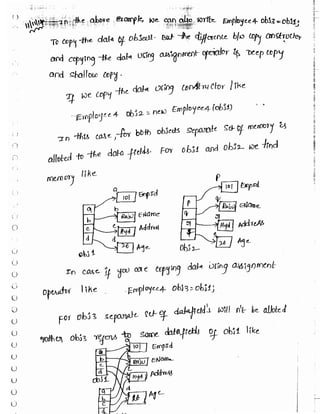 In the above example we can also write Employee4 obj3=obj1;
To copy the data of object. But the difference b/w copy constructor
and copying the data using assignment operator is, Deep copy
and shallow copy.
If we copy the data using constructor like
Employee4 obj2 = new Employee4 (obj1)
In this case, for both objects separate set of memory is
alloted to the data fields. For obj1 and obj2 we find
memory like.
a 101 EmpId
b Raju EName
c Hyd Address
d 20 Age
obj1
p 101 EmpId
q Raju EName
r Hyd Address
s 20 Age
obj2
In case if you are copying data using assignment
operator like Employee4 obj3=obj1;
For obj3 separate set of datafield's will n't be alloted
rather, obj3 refers to same datafields of obj1 like
101 EmpId
Raju EName
Hyd Address
obj1
Age